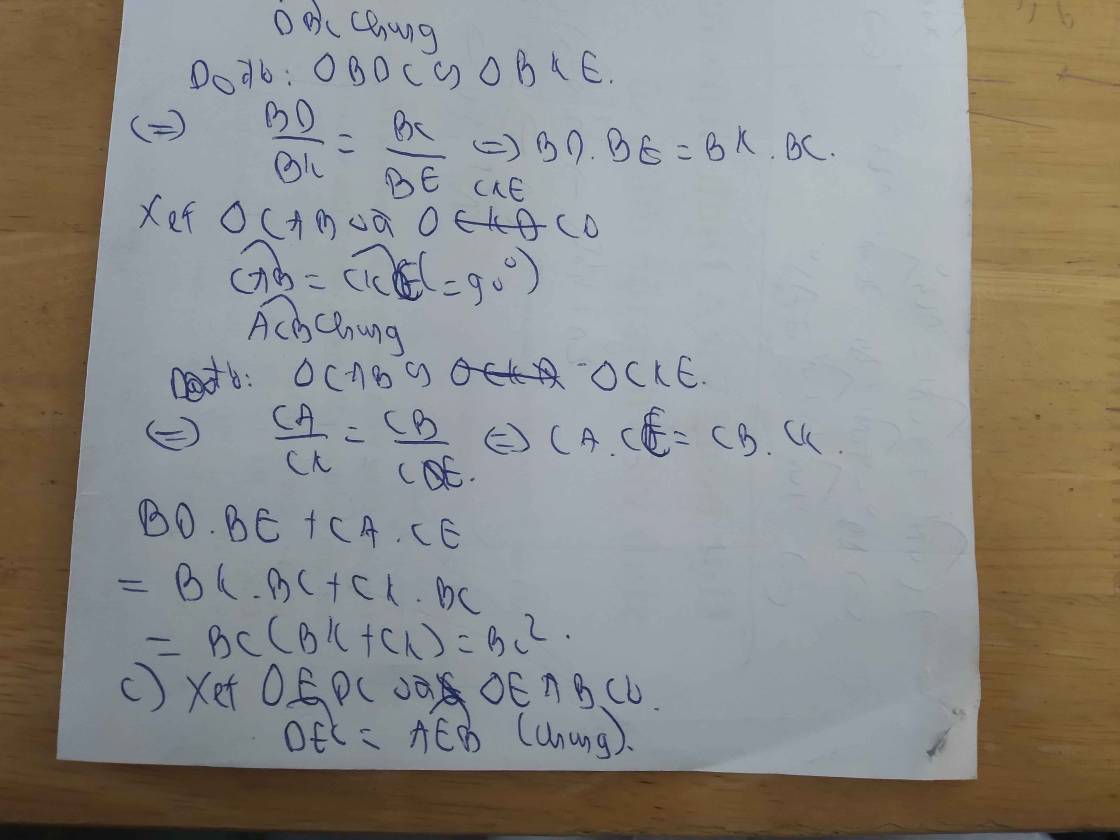 DBC chung
Do đó: △BDC ∽ △BKE.
(=) BD/BK = BC/BE (=) BD.BE = BK.BC.
Xét △CAB và △CKE có
CAB = CKE (=90°)
ACB chung
Do đó: △CAB ∽ △CKE.
(=) CA/CK = CB/CE. (=) CA.CE = CB.CK.
BD.BE + CA.CE
= BK.BC + CK.BC
= BC(BK+CK) = BC².
c) Xét △EDC và △EAB có.
DEC = AEB (chung).